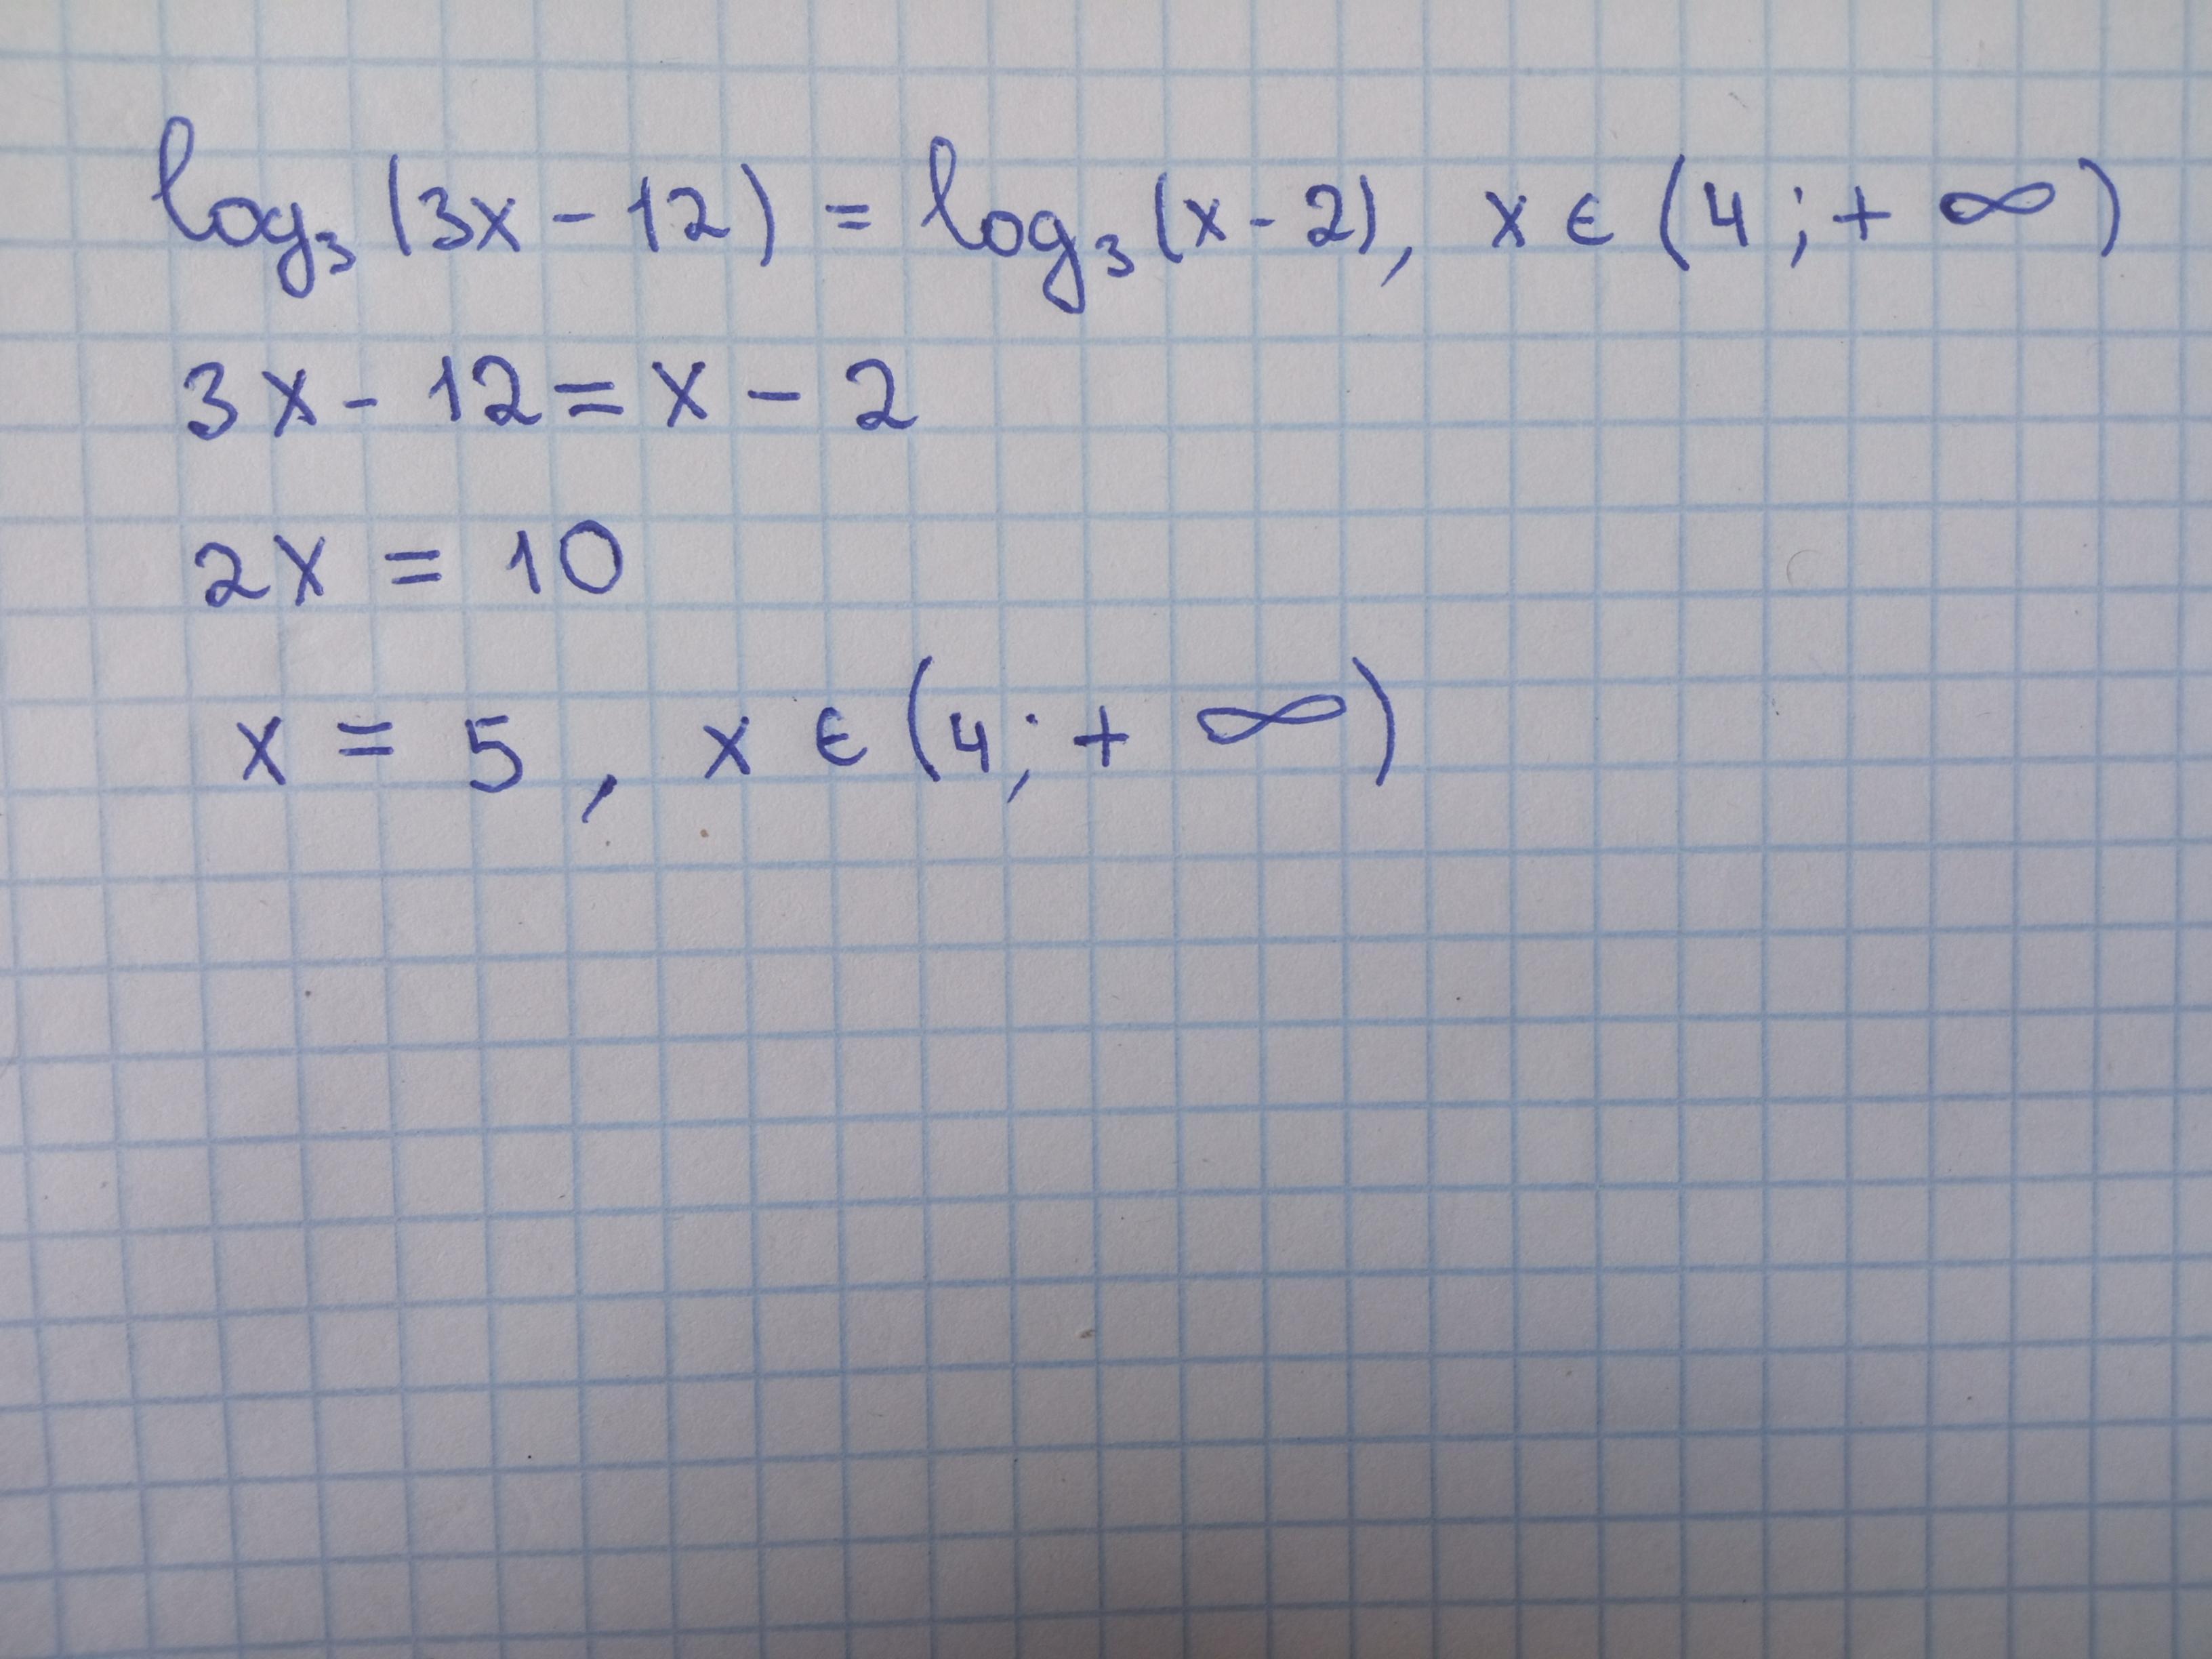 log₃(3x - 12) = log₃(x - 2), x ∈ (4; + ∞)
3x - 12 = x - 2
2x = 10
x = 5, x ∈ (4; + ∞)